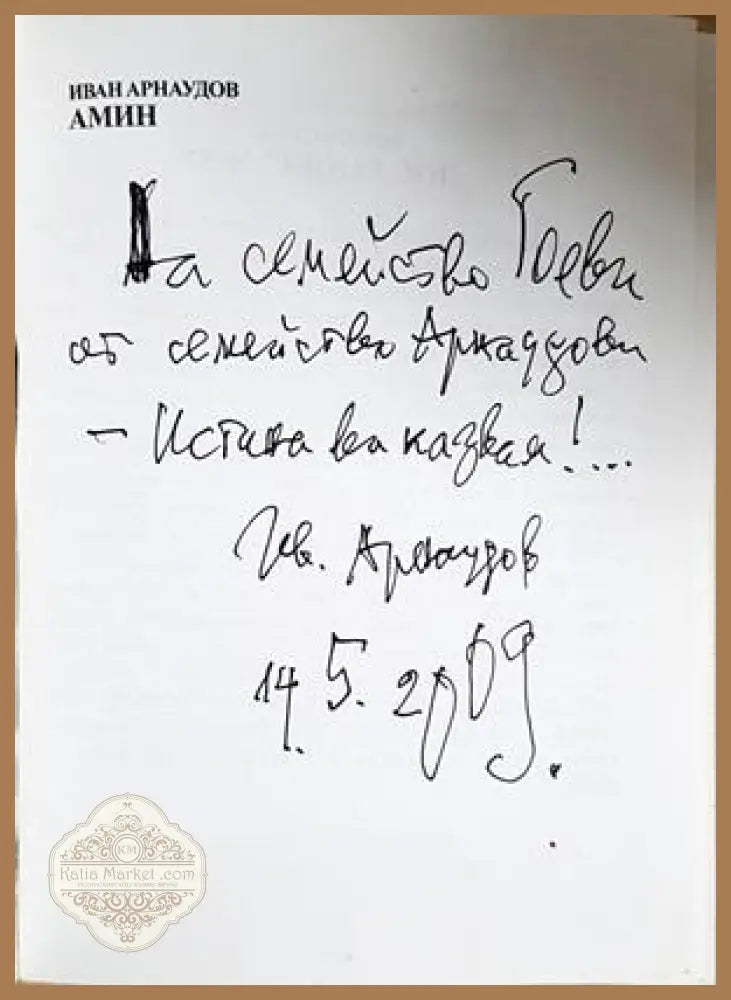 ИВАН АРНАУДОВ
АМИН
На семейство Гоеви
от семейство Арнаудови
– Истина ви казвам!...
Ив. Арнаудов
14.5.2009.
KM
Katia Market .com